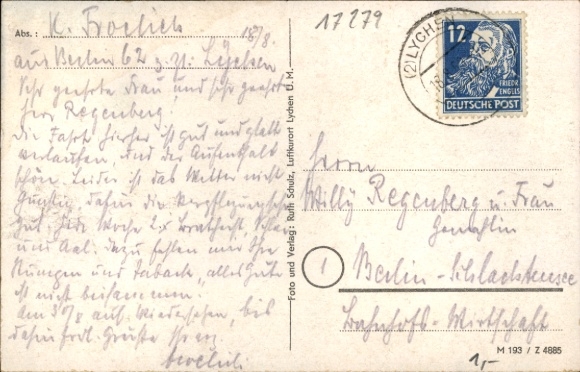 Abs.: K. Froelich 18/8.
aus Berlin 62 z. Zt. Lychen
Sehr geehrte Frau und sehr geehrter
Herr Regenberg.
Die Fahrt hierher ist gut und glatt
verlaufen. Und der Aufenthalt
schön. Leider ist das Wetter nicht
günstig, dafür die Verpflegung sehr
gut. Jede Woche 2 x
und Aal. Dazu fehlen mir Ihre
und Taback, alles Gute
ist nicht beisammen.
Am auf Wiedersehen, bis
dahin frdl. Grüsse Ihr
Froelich
Foto und Verlag: Ruth Schulz, Luftkurort Lychen U. M.
17279
(2) LYCHEN
12
FRIEDR. ENGELS
DEUTSCHE POST
Herrn
Willy Regenberg u. Frau
Gemahlin
1
Berlin-Schlachtensee
Bahnhofs-Wirtschaft
M 193 / Z 4885
1,-